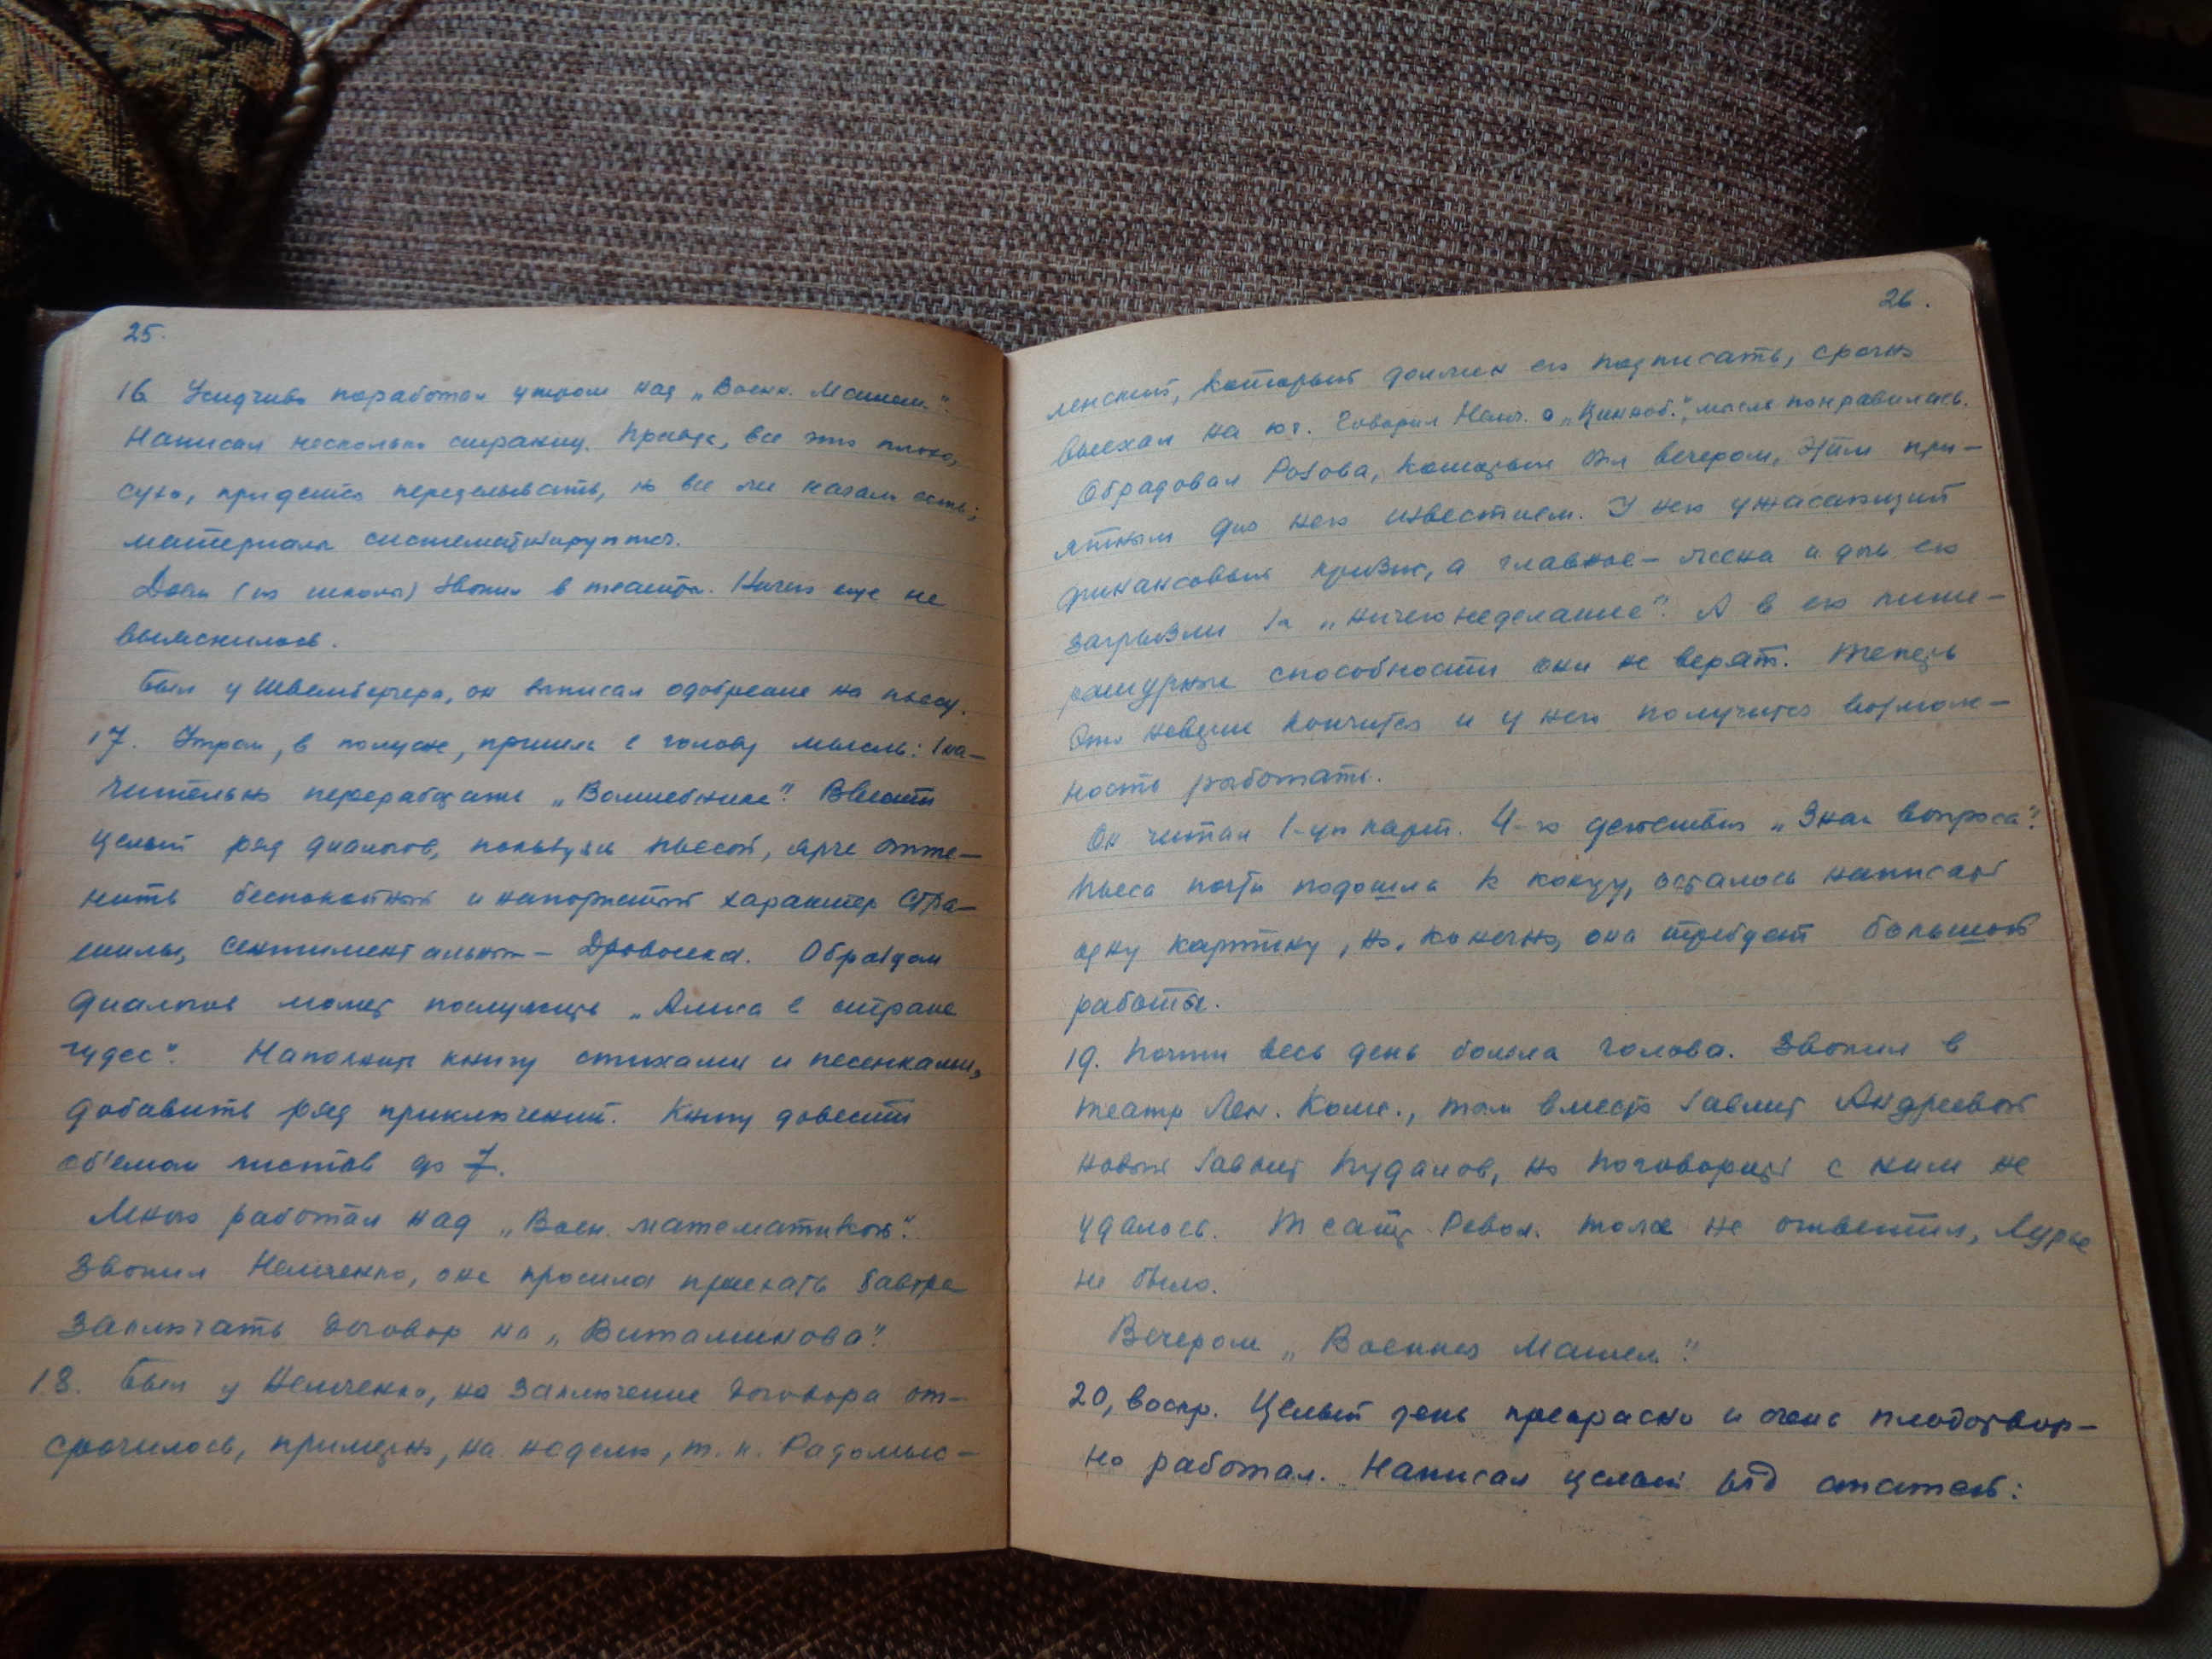 25.
16. Усидчиво поработал утром над „Воен. Матем.".
Написал несколько страниц. Правда, все это плохо,
сухо, придется переделывать, но все же начало есть;
материалы систематизируются.
Днем (из школы) звонил в театры. Ничего еще не
выяснилось.
Был у Швембергера, он написал одобрение на пьесу.
17. Утром, в полусне, пришла в голову мысль: зна-
чительно переработать „Волшебника". Ввести
целый ряд диалогов, пользуясь пьесой, ярче отте-
нить беспокойный и напористый характер Стра-
шилы, сентиментальный – Дровосека. Образцом
диалогов может послужить „Алиса в стране
чудес". Наполнить книгу стихами и песенками,
добавить ряд приключений. Книгу довести
об'емом листов до 7.
Много работал над „Воен. математикой".
Звонил Немченко, она просила приехать завтра
заключать договор на „Витаминова".
18. Был у Немченко, но заключение договора от-
срочилось, примерно, на неделю, т. к. Радомыс-
26.
ленский, который должен его подписать, срочно
выехал на юг. Говорил Немч. о „Цинноб.", мысль понравилась.
Обрадовал Розова, который был вечером, этим при-
ятным для него известием. У него ужасающий
финансовый кризис, а главное – жена и дочь его
загрызли за „ничегонеделание". А в его лите-
ратурные способности они не верят. Теперь
это неверие кончится и у него получится возмож-
ность работать.
Он читал 1-ую карт. 4-го действия „Знак вопроса".
Пьеса почти подошла к концу, осталось написать
одну картину, но, конечно, она требует большой
работы.
19. Почти весь день болела голова. Звонил в
театр Лен. Комс., там вместо завлит Андреевой
новый завлит Пуданов, но поговорить с ним не
удалось. Театр Револ. тоже не ответил, Лурье
не было.
Вечером „Военная Матем."
20, воскр. Целый день прекрасно и очень плодотвор-
но работал. Написал целый ряд статей: